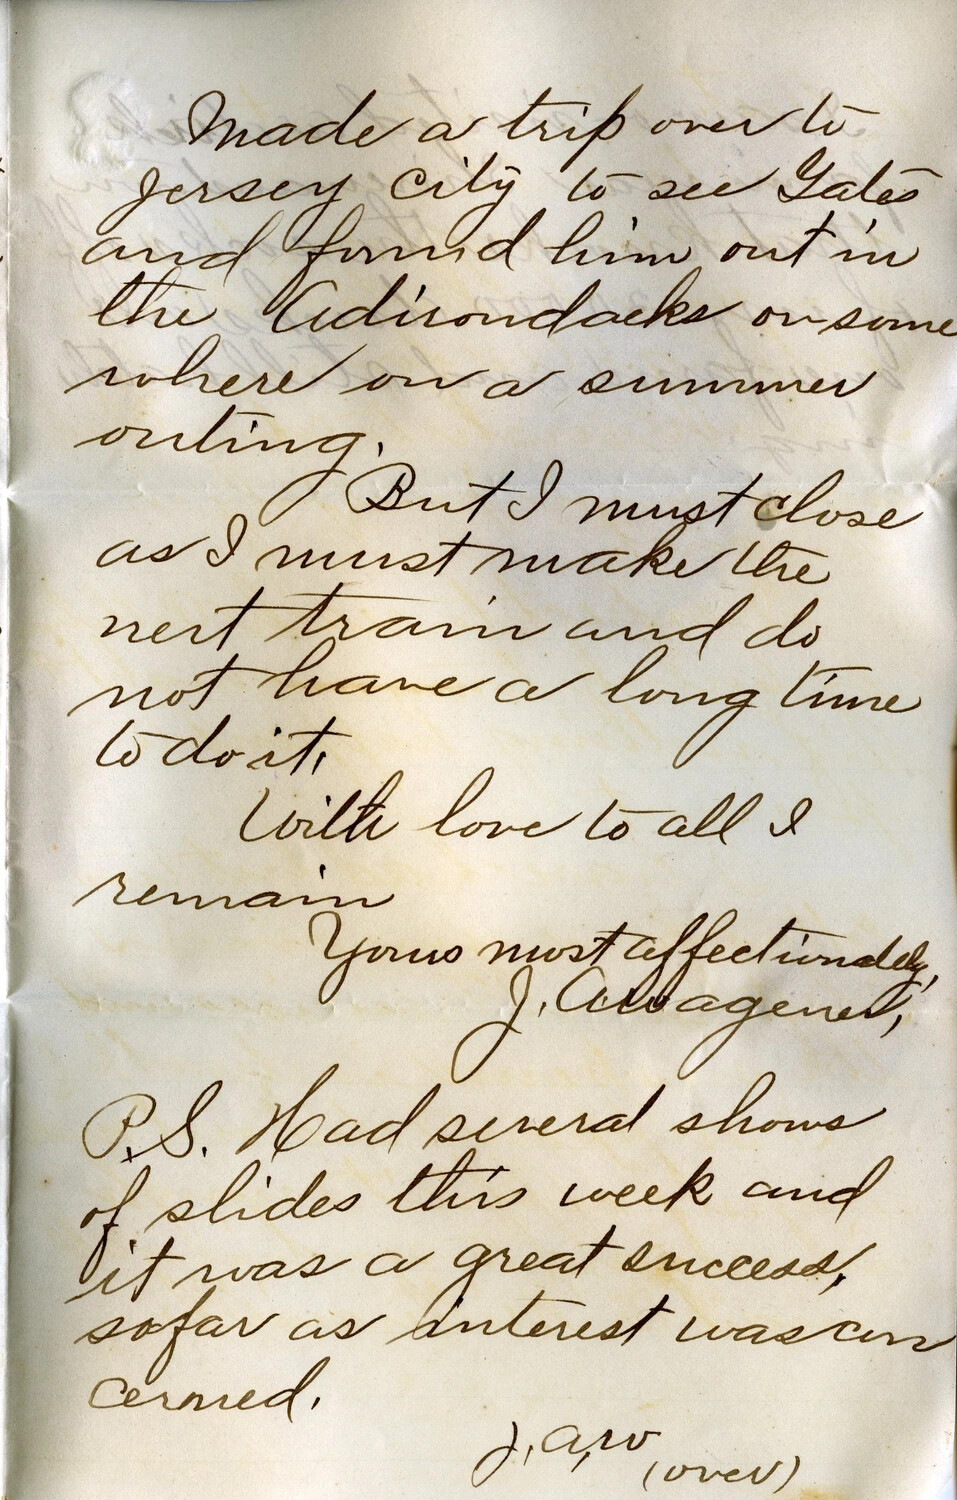 Made a trip over to
Jersey City to see Gates
and found him out in
the Adirondacks or some
where on a summer
outing.
But I must close
as I must make the
next train and do
not have a long time
to do it.
With love to all I
remain
Yours most affectionately,
J. A. Wagener,
P.S. Had several shows
of slides this week and
it was a great success,
so far as interest was con
cerned.
J.A.W
(over)